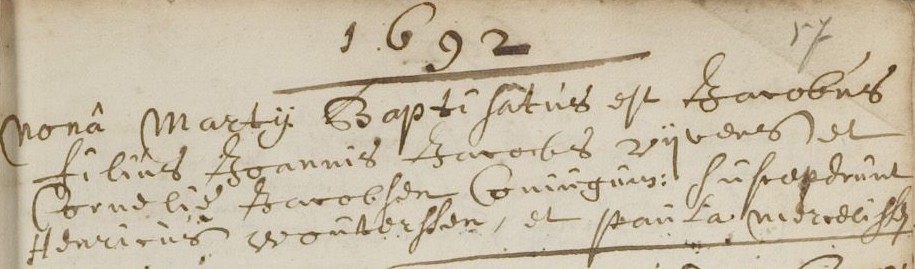 1692
57
nonâ Martÿ Baptisatus est Jacobus
filius Joannis Jacobs vÿvers et
Corneliè Jacobsen Coniugum: susceperunt
Henricus Wouterssen, et paula mercelissen